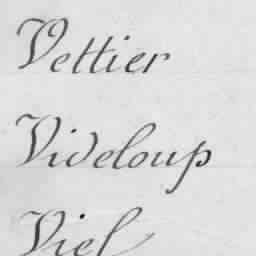 Vettier
Videloup
Viel